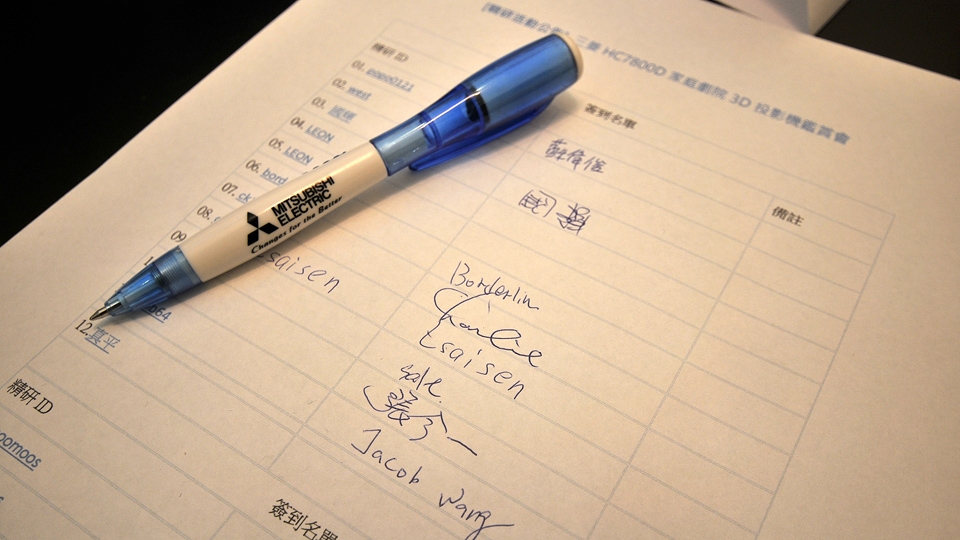 [精研活動公告] 三菱 HC7800D 家庭劇院 3D 投影機鑑賞會
精研 ID
簽到名單
備註
01. popo0121
02. west
03.
04. LEON
05. LEON
06. bord
07. ck
08.
09
Esaisen
664
12. 真平
MITSUBISHI
ELECTRIC
Changes for the Better
蘇偉俊
Borderlin
Charlie
Esaisen
Jacob Wang
精研 ID
oomoos
簽到名單